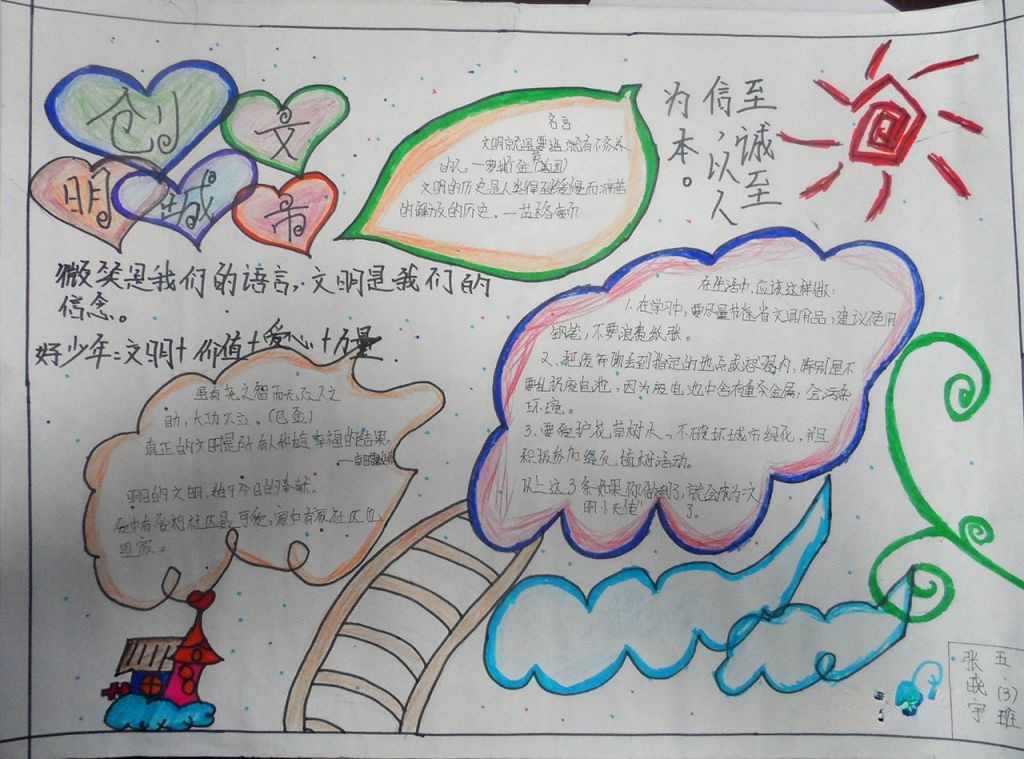 创文
明城市
名言
文明就是要造就有修养
的人。—罗斯金(英国)
文明的历史是人类得到缓慢而痛苦
的解放的历史。—
至诚至
信,以人
为本。
微笑是我们的语言,文明是我们的
信念。
好少年=文明+价值+爱心+力量
在生活中,应该这样做:
1.在学习中,要尽量节省文具用品,建议使用
钢笔,不要浪费纸张。
2、把废弃物丢到指定的地点或容器内,特别是不
要乱扔废电池,因为废电池中含有重金属,会污染
环境。
3、要爱护花草树木,不破坏城市绿化,并且
积极参加绿化植树活动。
以上这3条如果你做到了,就会成为文
明小天使了。
虽有尧之智而无众人之
助,大功不立。
真正的文明是所有人种植幸福的结果。
明日的文明,始于今日的奉献。
五(3)班
张晓宇